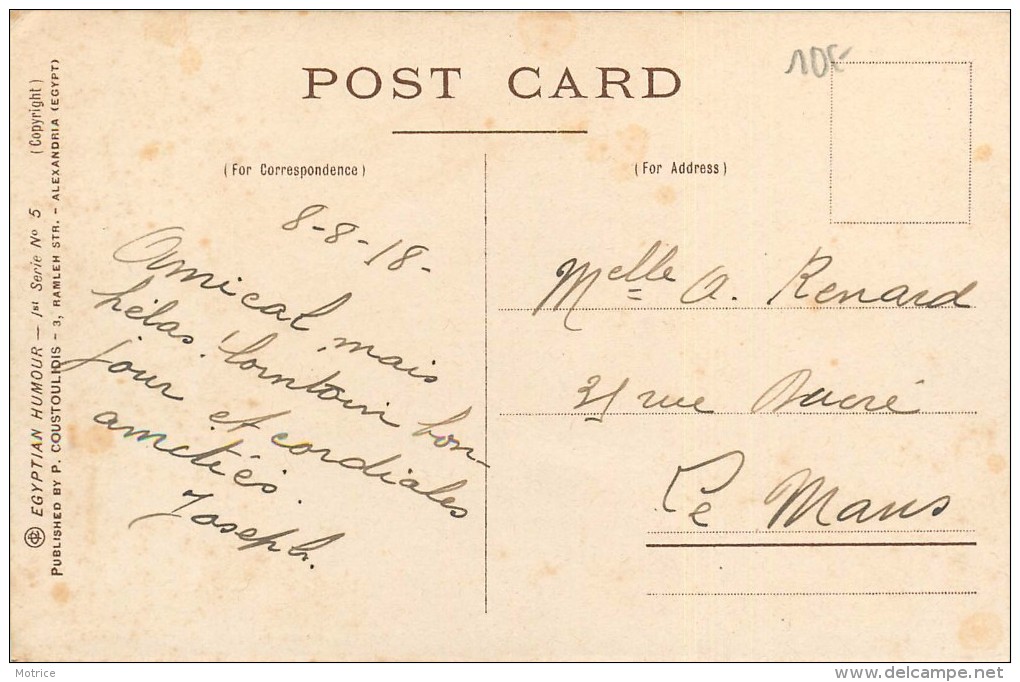 POST CARD
10€
(For Correspondence)
(For Address)
8-8-18-
Amical, mais
hélas! lointain bon-
jour et cordiales
amitiés.
Joseph.
Melle A. Renard
31 rue
Le Mans
EGYPTIAN HUMOUR — 1st Serie No 5 (Copyright)
PUBLISHED BY P. COUSTOULIDIS - 3, RAMLEH STR. - ALEXANDRIA (EGYPT)
Motrice
www.delcampe.net